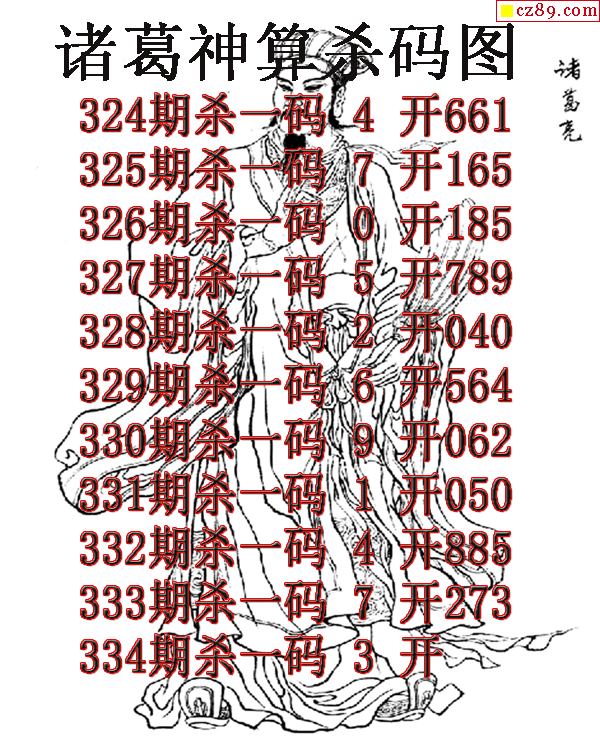 cz89.com
诸葛神算杀码图
诸葛亮
324期杀一码 4 开661
325期杀一码 7 开165
326期杀一码 0 开185
327期杀一码 5 开789
328期杀一码 2 开040
329期杀一码 6 开564
330期杀一码 9 开062
331期杀一码 1 开050
332期杀一码 4 开885
333期杀一码 7 开273
334期杀一码 3 开